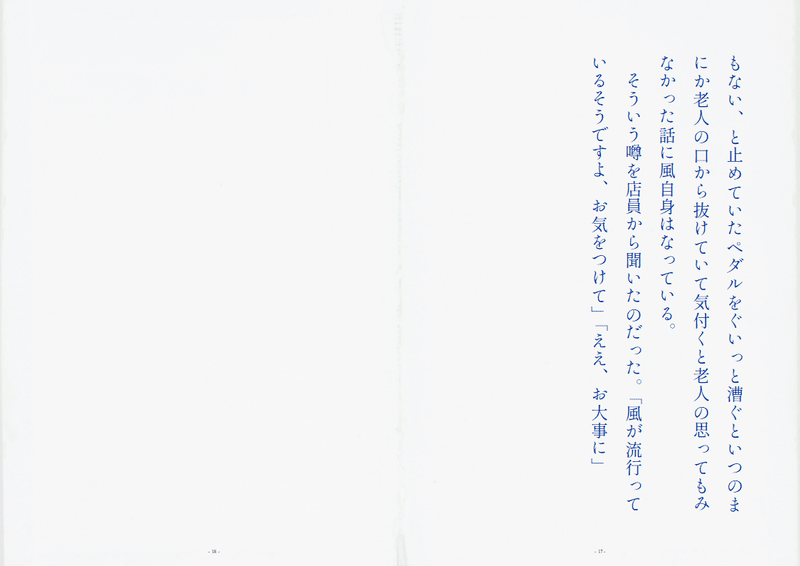 もない、と止めていたペダルをぐいっと漕ぐといつのま
にか老人の口から抜けていて気付くと老人の思ってもみ
なかった話に風自身はなっている。
　そういう噂を店員から聞いたのだった。「風が流行って
いるそうですよ、お気をつけて」「ええ、お大事に」
- 17 -
- 18 -